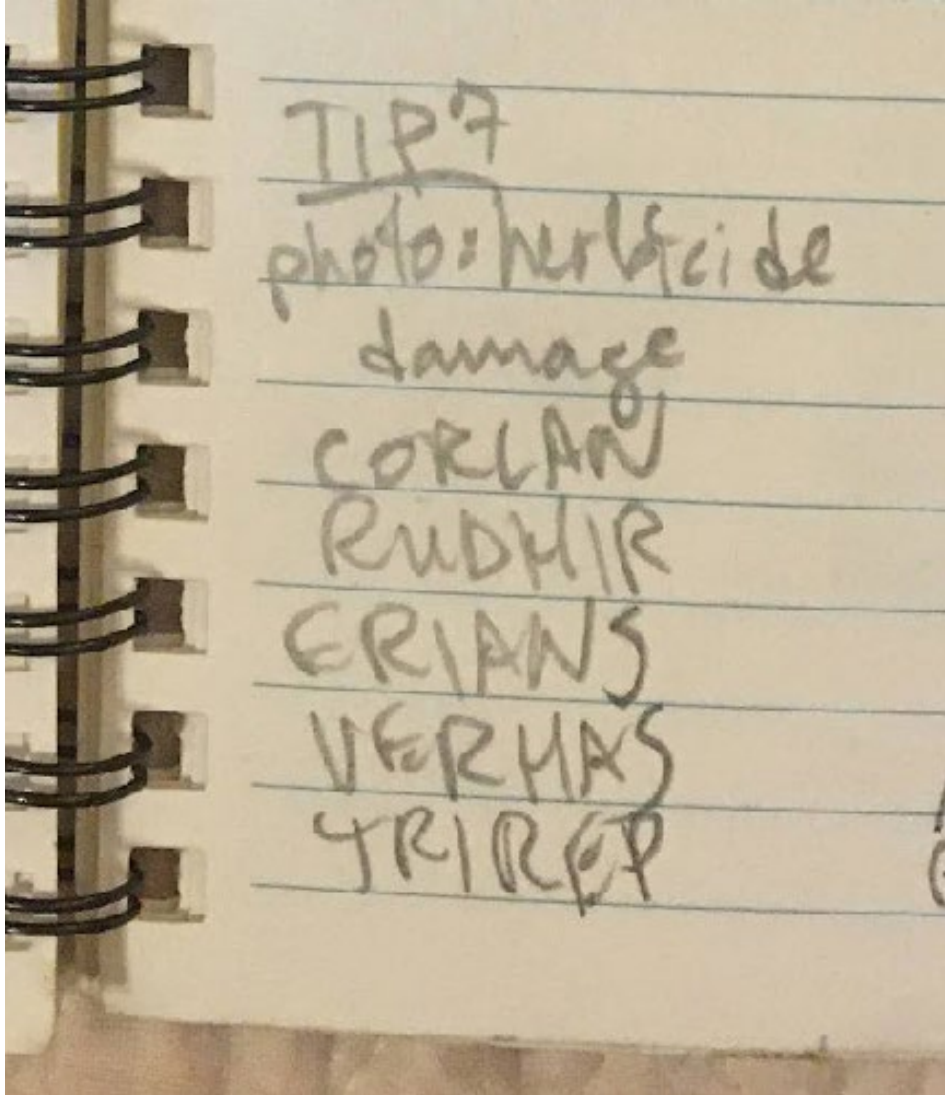 TIP7
photo: herbicide
damage
CORLAN
RUDHIR
ERIANS
VERHAS
TRIREP